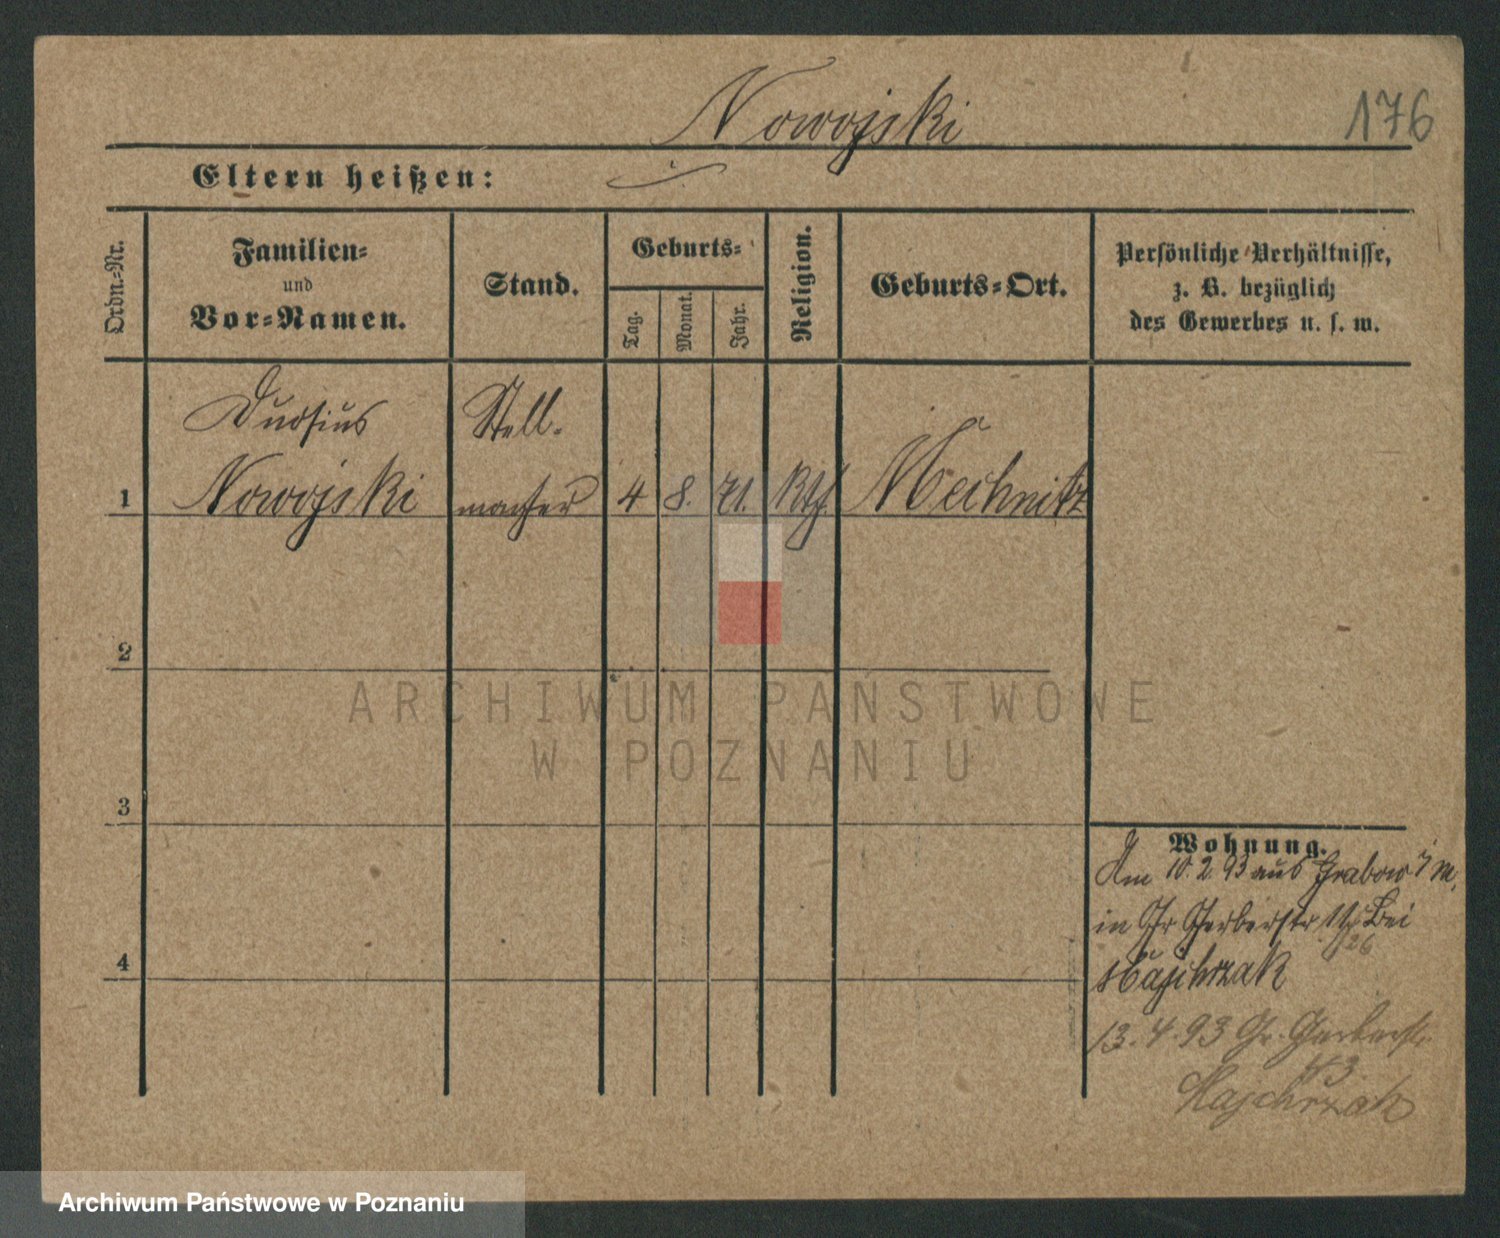 Nowojski
176
Eltern heißen:
Ordn.-Nr.
Familien-
und
Vor-Namen.
Stand.
Geburts-
Tag.
Monat.
Jahr.
Religion.
Geburts-Ort.
Persönliche Verhältnisse,
z. B. bezüglich
des Gewerbes u. s. w.
Stell-
1 Nowojski macher 4 8. 71. kth. Mechnitz
2
3
4
Wohnung.
Am 10. 2. 93 aus Grabow
in Gr Gerberstr bei
Majchrzak
13. 4. 93 Gr. Gerberstr.
43
Majchrzak
ARCHIWUM PAŃSTWOWE
W POZNANIU
Archiwum Państwowe w Poznaniu